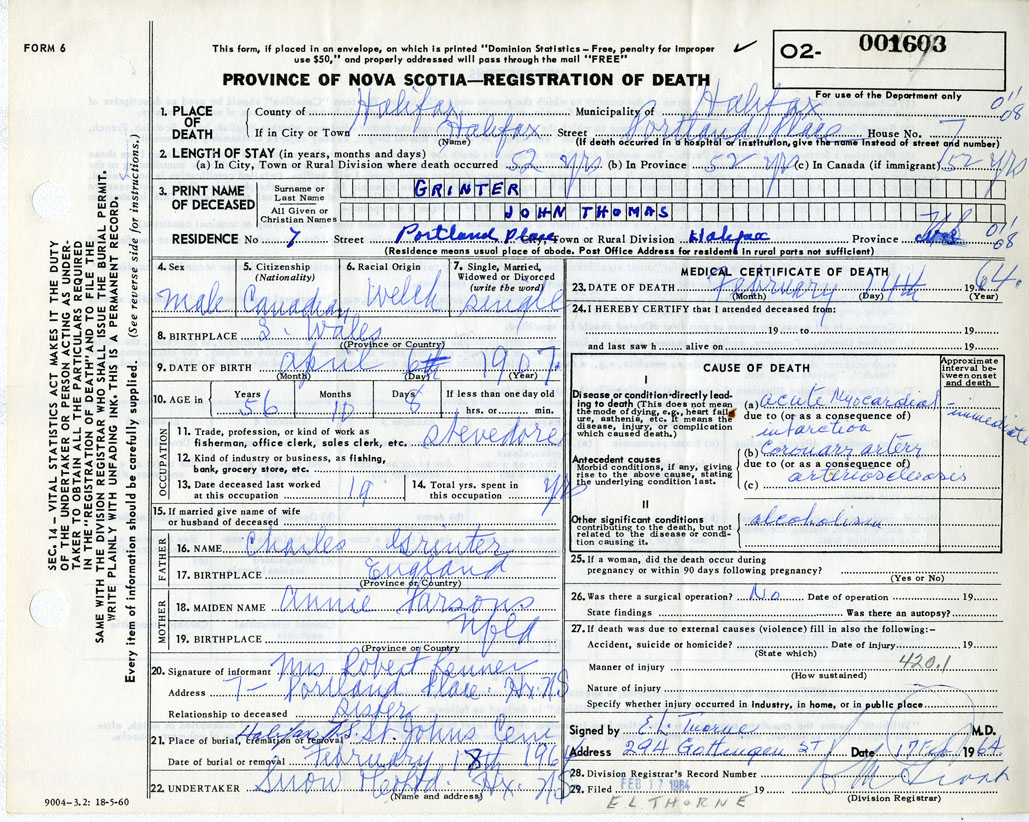 FORM 6
This form, if placed in an envelope, on which is printed "Dominion Statistics – Free, penalty for improper
use $50," and properly addressed will pass through the mail "FREE"
✓
O2- 001603
For use of the Department only
PROVINCE OF NOVA SCOTIA—REGISTRATION OF DEATH
011
08
1. PLACE OF DEATH
County of Halifax Municipality of Halifax
If in City or Town Halifax Street Portland Place House No. 7
(Name) (If death occurred in a hospital or institution, give the name instead of street and number)
2. LENGTH OF STAY (in years, months and days)
(a) In City, Town or Rural Division where death occurred 52 yrs (b) In Province 52 yrs (c) In Canada (if immigrant) 52 yrs
3. PRINT NAME OF DECEASED
Surname or Last Name GRINTER
All Given or Christian Names JOHN THOMAS
01'
08
RESIDENCE No 7 Street Portland Place City, Town or Rural Division Halifax Province
(Residence means usual place of abode. Post Office Address for residents in rural parts not sufficient)
4. Sex
male
5. Citizenship (Nationality)
Canadian
6. Racial Origin
Welch
7. Single, Married, Widowed or Divorced (write the word)
single
8. BIRTHPLACE S. Wales
(Province or Country)
9. DATE OF BIRTH April 6th 1907.
(Month) (Day) (Year)
10. AGE in Years 56 Months 10 Days 8 If less than one day old
hrs. or min.
OCCUPATION
11. Trade, profession, or kind of work as
fisherman, office clerk, sales clerk, etc. stevedore
12. Kind of industry or business, as fishing,
bank, grocery store, etc.
13. Date deceased last worked
at this occupation 19
14. Total yrs. spent in
this occupation yrs
15. If married give name of wife
or husband of deceased
FATHER
16. NAME Charles Grinter
17. BIRTHPLACE England
(Province or Country)
MOTHER
18. MAIDEN NAME Annie Parsons
19. BIRTHPLACE Nfld
(Province or Country)
20. Signature of informant Mrs Robert
Address 7 – Portland Place. Hx. NS
Relationship to deceased sister
21. Place of burial, cremation or removal Halifax N.S. St. Johns Cem
Date of burial or removal February 18th 1964
22. UNDERTAKER Snow Hx. NS
(Name and address)
9004-3.2: 18-5-60
SEC. 14 – VITAL STATISTICS ACT MAKES IT THE DUTY
OF THE UNDERTAKER OR PERSON ACTING AS UNDER-
TAKER TO OBTAIN ALL THE PARTICULARS REQUIRED
IN THE "REGISTRATION OF DEATH" AND TO FILE THE
SAME WITH THE DIVISION REGISTRAR WHO SHALL ISSUE THE BURIAL PERMIT.
WRITE PLAINLY WITH UNFADING INK. THIS IS A PERMANENT RECORD.
Every item of information should be carefully supplied. (See reverse side for instructions.)
MEDICAL CERTIFICATE OF DEATH
23. DATE OF DEATH February 14th 1964.
(Month) (Day) (Year)
24. I HEREBY CERTIFY that I attended deceased from:
19 to 19
and last saw h alive on 19
CAUSE OF DEATH
Approximate interval between onset and death
I
Disease or condition directly lead-
ing to death (This does not mean
the mode of dying, e.g., heart fail-
ure, asthenia, etc. It means the
disease, injury, or complication
which caused death.)
(a) acute Myocardial immediate
due to (or as a consequence of)
infarction
Antecedent causes
Morbid conditions, if any, giving
rise to the above cause, stating
the underlying condition last.
(b) Coronary artery
due to (or as a consequence of)
arteriosclerosis
(c)
II
Other significant conditions
contributing to the death, but not
related to the disease or condi-
tion causing it.
alcoholism
25. If a woman, did the death occur during
pregnancy or within 90 days following pregnancy?
(Yes or No)
26. Was there a surgical operation? No Date of operation 19
State findings Was there an autopsy?
27. If death was due to external causes (violence) fill in also the following:–
Accident, suicide or homicide? Date of injury 19
(State which)
420.1
Manner of injury
(How sustained)
Nature of injury
Specify whether injury occurred in industry, in home, or in public place
Signed by E. L. Thorne M.D.
Address 294 Gottingen ST Date 17 Feb 1964
28. Division Registrar's Record Number
29. Filed FEB 17 1964 19
(Division Registrar)
E L THORNE